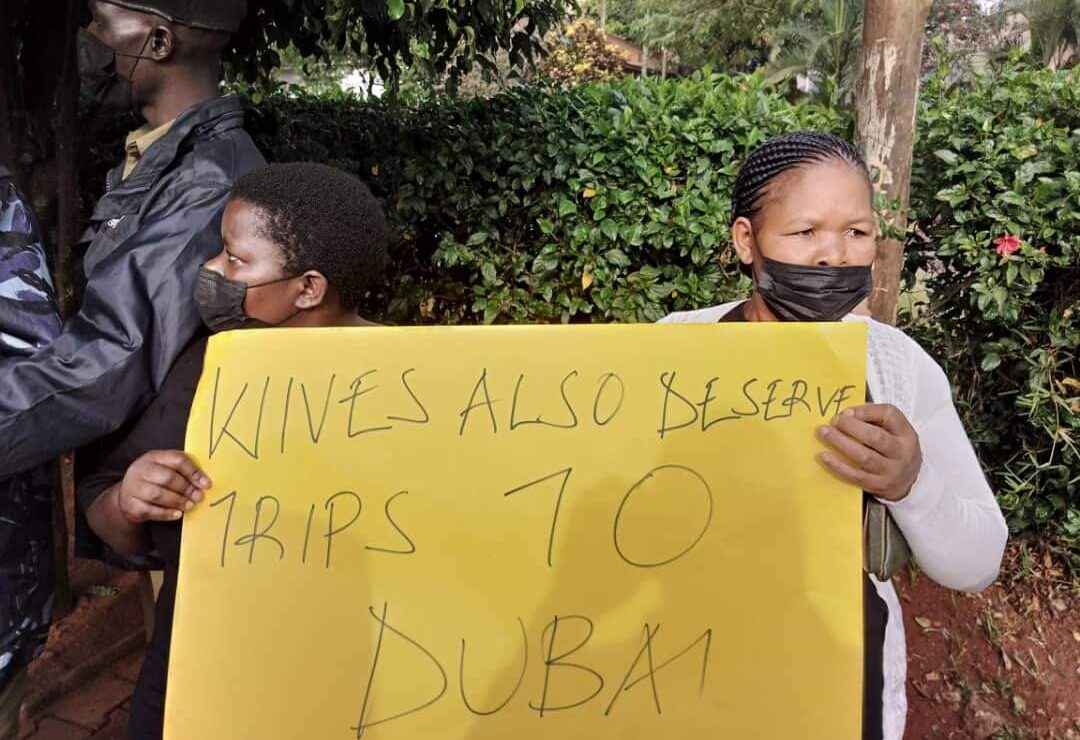 WIVES ALSO DESERVE
TRIPS TO
DUBAI